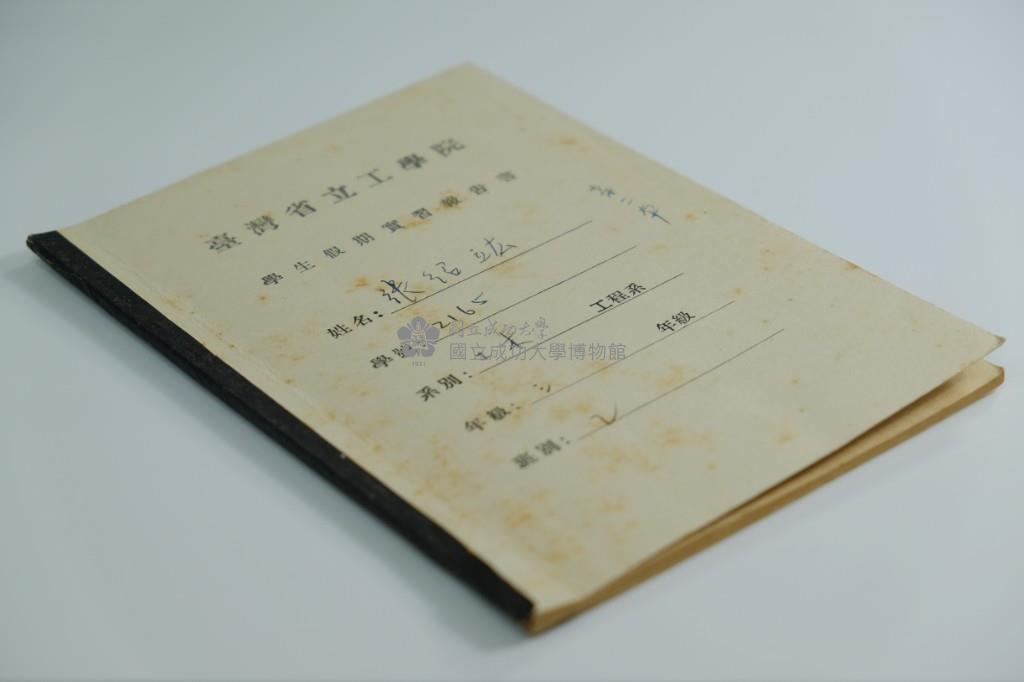 臺灣省立工學院
學生假期實習報告書
第二本
姓名：張紹竑
學號 2165
系別：土木 工程系
年級：三 年級
班別：乙
國立成功大學
國立成功大學博物館
1931